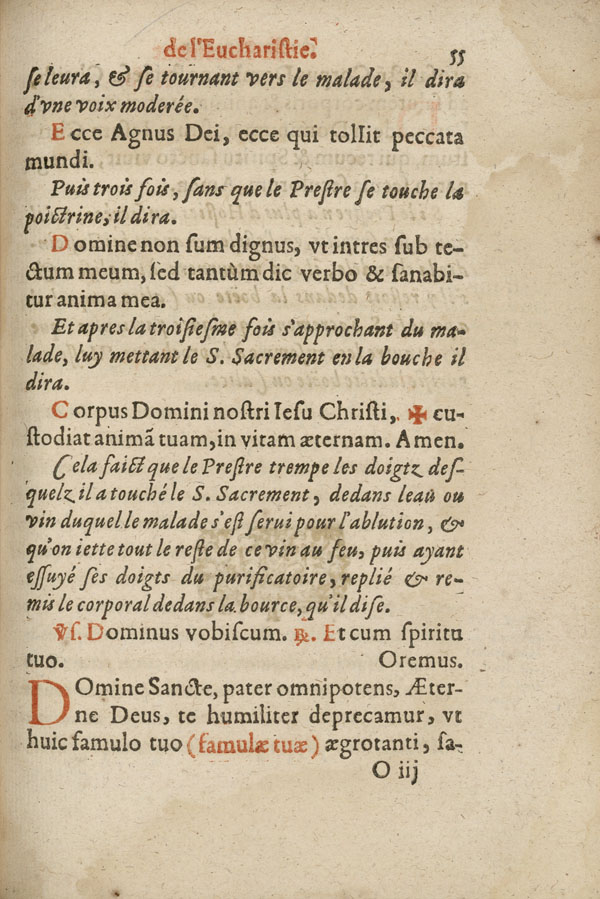 de l'Eucharistie.
55
ſe leura, & ſe tournant vers le malade, il dira
d'vne voix moderée.
Ecce Agnus Dei, ecce qui tollit peccata
mundi.
Puis trois fois, ſans que le Preſtre ſe touche la
poictrine, il dira.
Domine non ſum dignus, vt intres ſub te-
ctum meum, ſed tantùm dic verbo & ſanabi-
tur anima mea.
Et apres la troiſieſme fois s'approchant du ma-
lade, luy mettant le S. Sacrement en la bouche il
dira.
Corpus Domini noſtri Ieſu Chriſti, ✠ cu-
ſtodiat animã tuam, in vitam æternam. Amen.
Cela faict que le Preſtre trempe les doigtz deſ-
quelz il a touché le S. Sacrement, dedans leau ou
vin duquel le malade s'eſt ſerui pour l'ablution, &
qu'on iette tout le reſte de ce vin au feu, puis ayant
eſſuyé ſes doigts du purificatoire, replié & re-
mis le corporal dedans la bource, qu'il diſe.
℣ſ. Dominus vobiſcum. ℟. Et cum ſpiritu
tuo. Oremus.
DOmine Sancte, pater omnipotens, Æter-
ne Deus, te humiliter deprecamur, vt
huic famulo tuo (famulæ tuæ) ægrotanti, ſa-
O iij